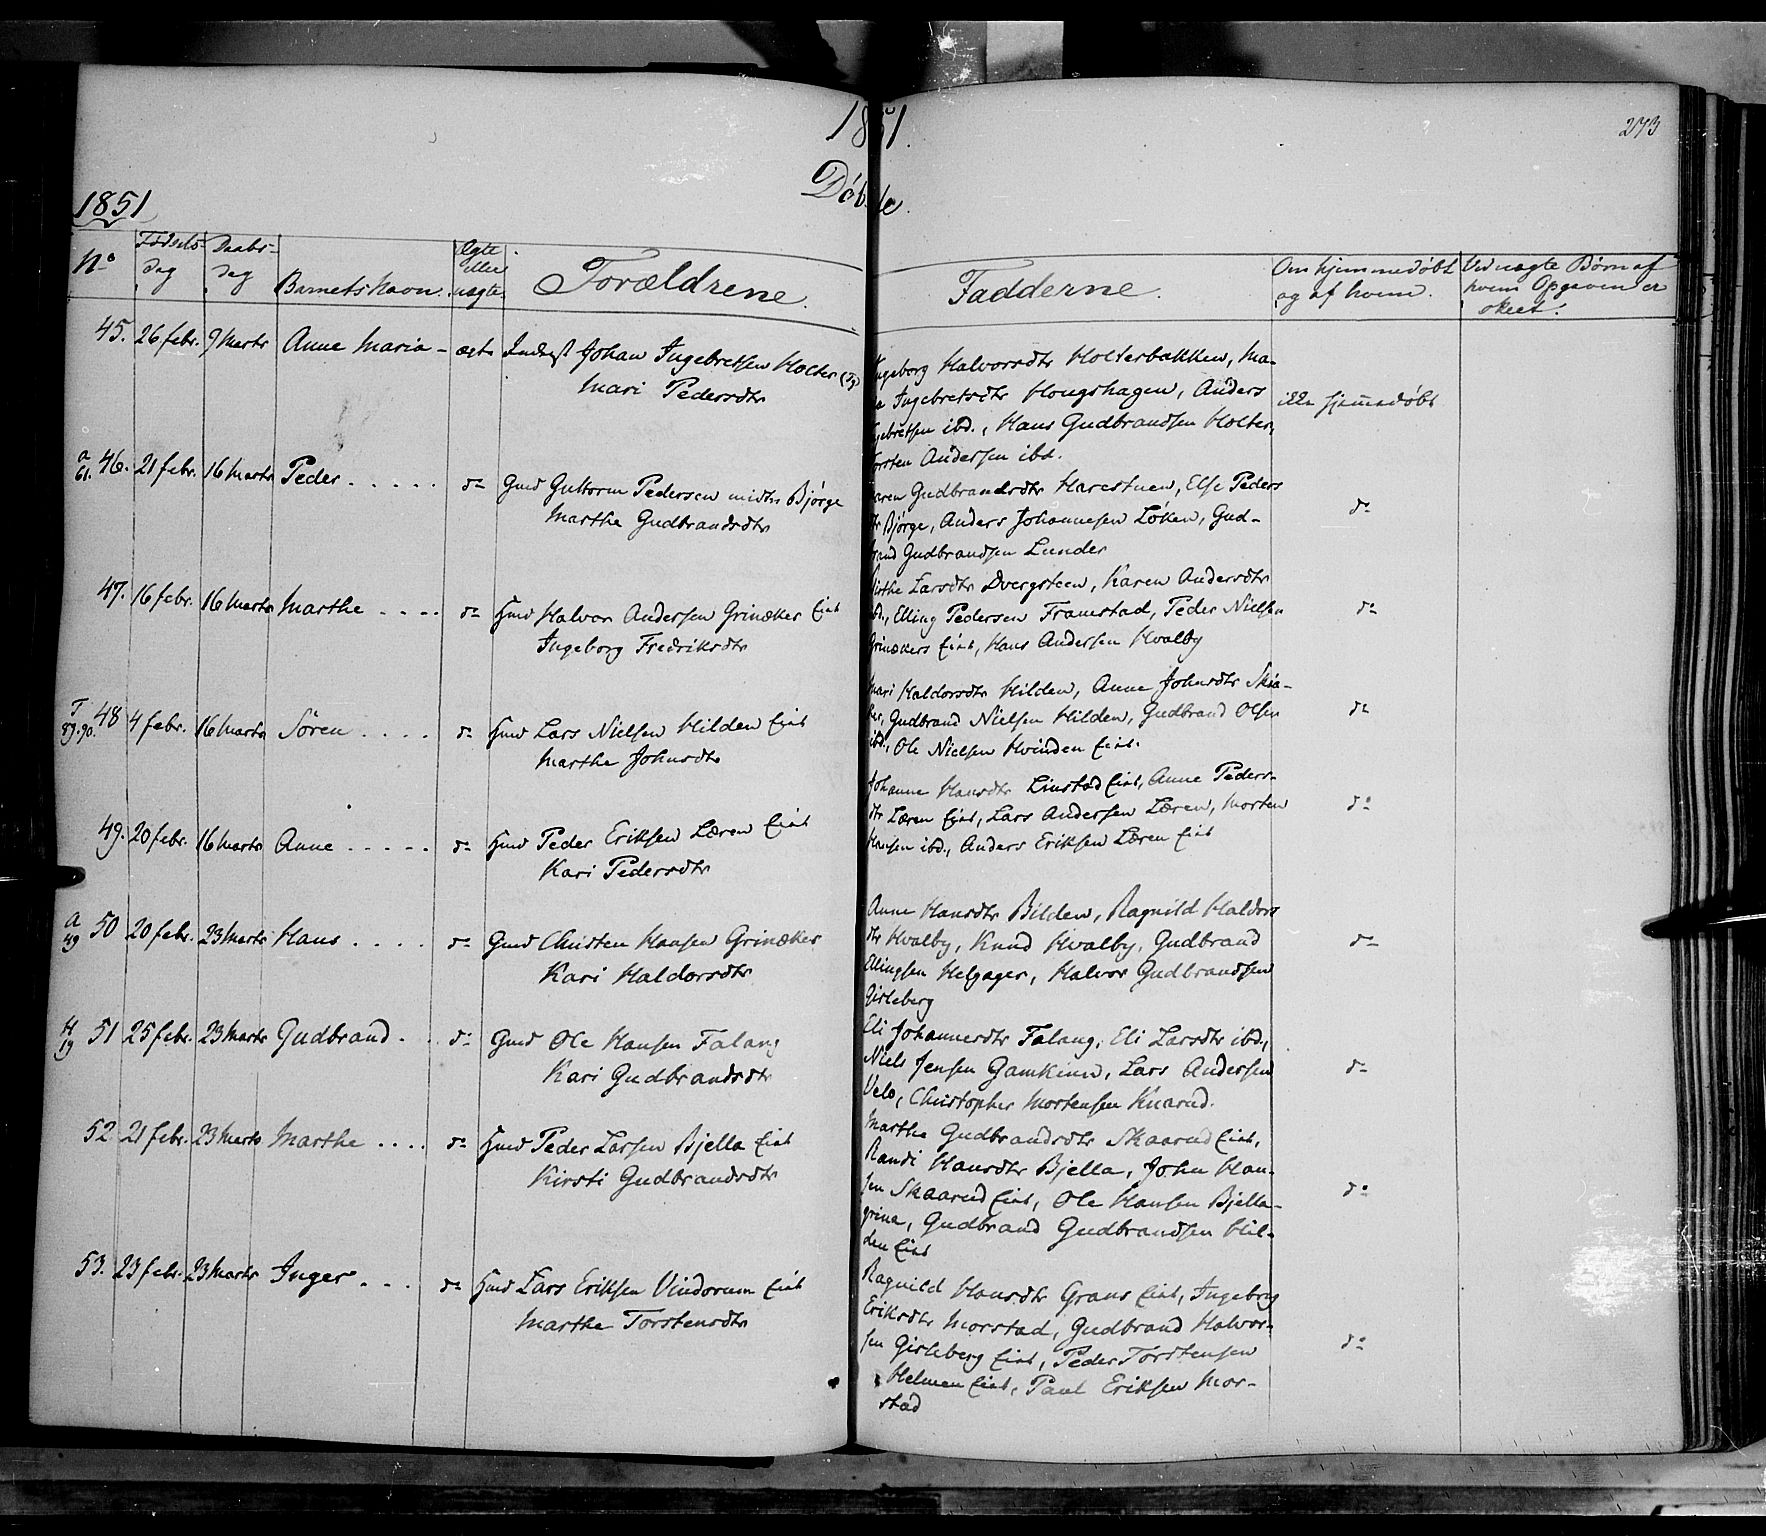 1851.
273
Døbte.
1851
No Fødsels Dag Daabs-Dag Barnets Navn. Ægte eller uægte. Forældrene. Fadderne. Om hjemmedøbt og af hvem. Ved uægte Børn af hvem Opgaven er skeet.
45. 26 febr. 9 Marts Anne Maria - ægte Indtgst Johan Ingebretsen Holter
Mari Pedersdtr
Ingeborg Halvorsdtr Holterbakken, Ma-
Ingebretsdtr Hougshagen, Anders
ikke hjemmedøbt
Ingebretsen ibd., Hans Gudbrandsen Holter,
Torsten Andersen ibd.
a 61. 46. 21 febr. 16 Marts Peder . . . . . do Gmd Guttorm Pedersen midtre Bjørge
Marthe Gudbrandsdtr
Karen Gudbrandsdtr Harestuen, Else Peders
dtr Bjørge, Anders Johannesen Løken, Gud-
do
brand Gudbrandsen Lunder
47. 16 febr. 16 Marts Marthe . . . . do Hmd Halvor Andersen Grinaker Eiet
Ingeborg Fredriksdtr
Marthe Larsdtr Dvergsteen, Karen Andersdtr
ibd., Elling Pedersen Framstad, Peder Nielsen
do
Grinakers Eiet, Hans Andersen Hvalby
T 89.90. 48 4 febr. 16 Marts Sören . . . . do Hmd Lars Nielsen Hilden Eiet
Marthe Johnsdtr
Mari Haldorsdtr Hilden, Anne Johnsdtr Skia-
ker, Gudbrand Nielsen Hilden, Gudbrand Olsen
do
ibd., Ole Nielsen Hvinden Eiet.
49. 20 febr. 16 Marts Anne . . . . . do Hmd Peder Eriksen Læren Eiet
Kari Pedersdtr
Johanne Hansdtr Linstad Eiet, Anne Peders-
dtr Læren Eiet, Lars Andersen Læren, Morten
do
Hansen ibd., Anders Eriksen Læren Eiet
A 49 50 20 febr. 23 Marts Hans . . . . do Gmd Christen Hansen Grinaker
Kari Haldorsdtr
Anne Hansdtr Bilden, Ragnild Haldors
dtr Hvalby, Knud Hvalby, Gudbrand
do
Ellingsen Helgager, Halvor Gudbrandsen
Gisleberg
H 19 51 25 febr. 23 Marts Gudbrand . . do Gmd Ole Hansen Falang
Kari Gudbrandsdtr
Eli Johannesdtr Falang, Eli Larsdtr ibd.,
Niels Jensen Gamkinn, Lars Andersen
do
Velo, Christopher Mortensen Knarud.
52 21 febr. 23 Marts Marthe . . . . do Hmd Peder Larsen Bjella Eiet
Kirsti Gudbrandsdtr
Marthe Gudbrandsdtr Skaarud Eiet,
Randi Hansdtr Bjella, John Han-
sen Skaarud Eiet, Ole Hansen Bjella-
do
grina, Gudbrand Gudbrandsen Hil-
den Eiet
53. 23 febr. 23 Marts Inger . . . do Hmd Lars Eriksen Vindorum Eiet
Marthe Torstensdtr
Ragnild Hansdtr Grans Eiet, Ingeborg
Eriksdtr Morstad, Gudbrand Halvor-
sen Gisleberg Eiet, Peder Torstensen
do
Helmen Eiet, Paul Eriksen Mor-
stad